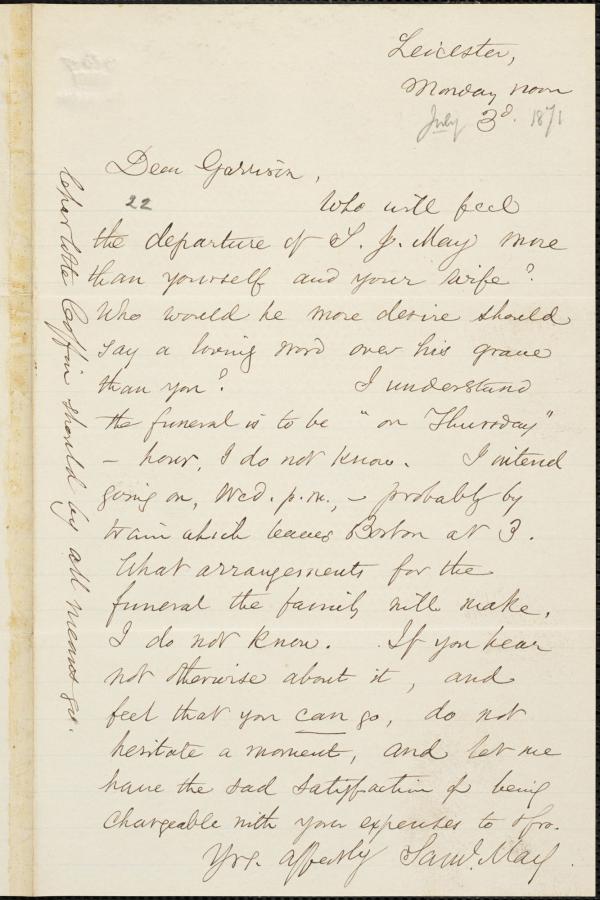 Leicester,
Monday noon
July 3d. 1871
Dear Garrison,
22
Who will feel
the departure of S. J. May more
than yourself and your wife?
Who would he more desire should
say a loving word over his grave
than you? I understand
the funeral is to be "on Thursday"
- hour, I do not know. I intend
going on, Wed. p.m., - probably by
train which leaves Boston at 3.
What arrangements for the
funeral the family will make,
I do not know. If you hear
not otherwise about it, and
feel that you can go, do not
hesitate a moment, and let me
have the sad satisfaction of being
chargeable with your expenses to & fro.
Yrs. affectly Saml. May.
Charlotte Coffin should by all means go.